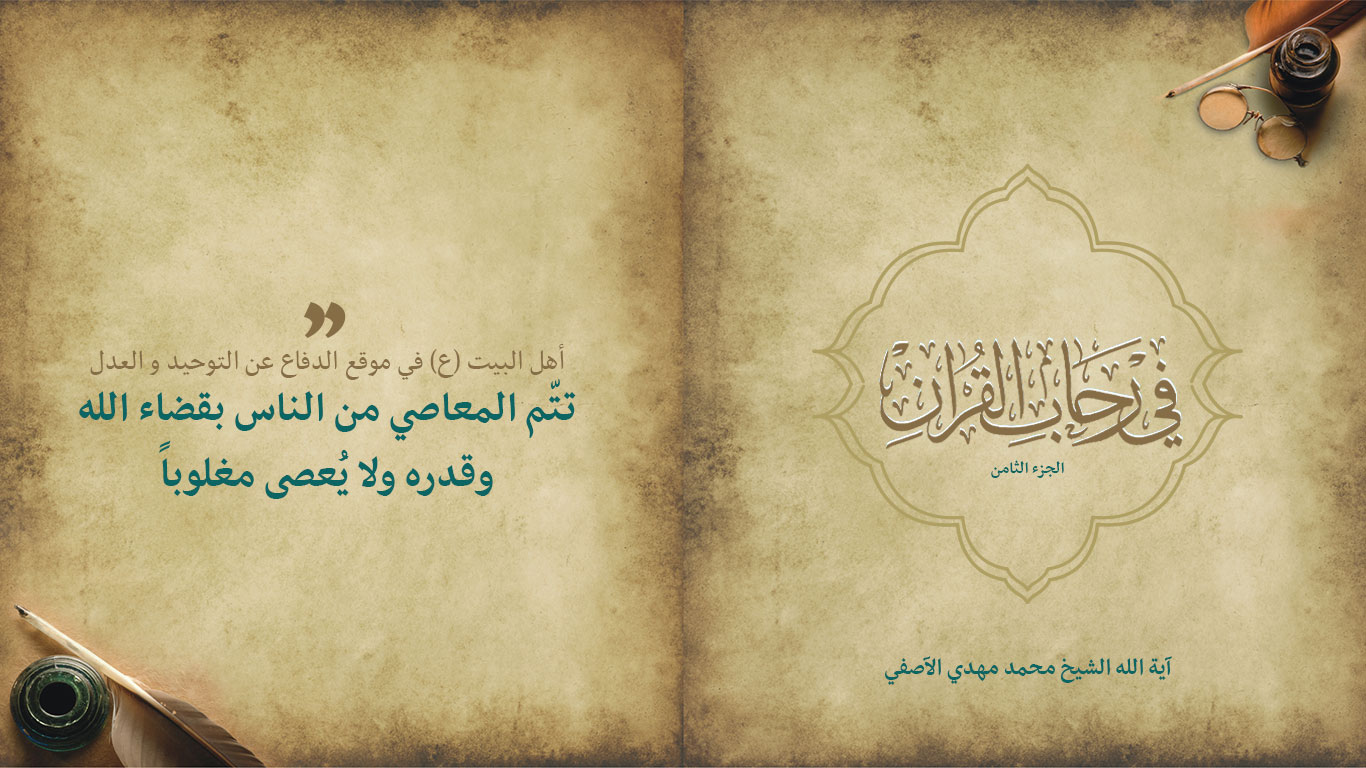 في رحاب القرآن
الجزء الثامن
آية الله الشيخ محمد مهدي الآصفي
”
أهل البيت (ع) في موقع الدفاع عن التوحيد و العدل
تتّم المعاصي من الناس بقضاء الله
وقدره ولا يُعصى مغلوباً